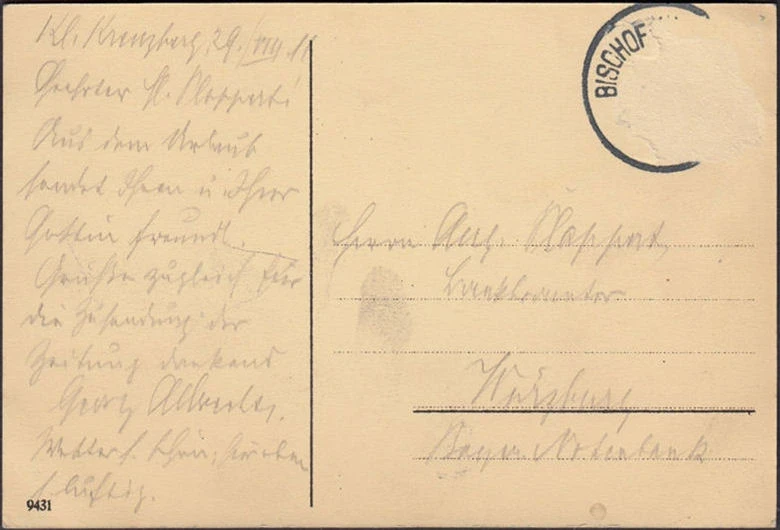 Kl. Kreuzberg, 29./VIII.
Geehrter H. Klappert!
Aus dem Urlaub
sendet Ihnen u. Ihrer
Gattin freundl.
Grüße zugleich für
die Zusendung der
Zeitung dankend
Georg
Wetter s. schön,
luftig.
9431
BISCHOF
Herrn Aug. Klappert,
Bankbeamter
Würzburg
Bayer. Notenbank